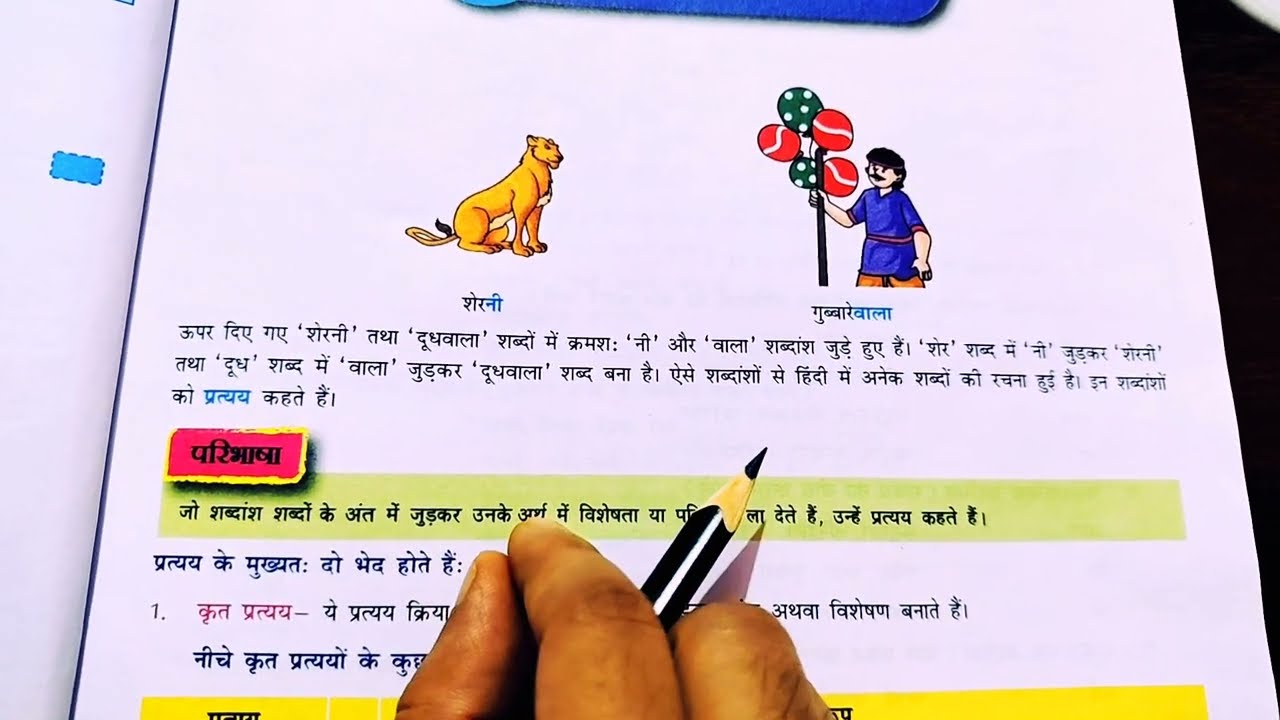 शेरनी
गुब्बारेवाला
ऊपर दिए गए ‘शेरनी’ तथा ‘दूधवाला’ शब्दों में क्रमशः ‘नी’ और ‘वाला’ शब्दांश जुड़े हुए हैं। ‘शेर’ शब्द में ‘नी’ जुड़कर ‘शेरनी’
तथा ‘दूध’ शब्द में ‘वाला’ जुड़कर ‘दूधवाला’ शब्द बना है। ऐसे शब्दांशों से हिंदी में अनेक शब्दों की रचना हुई है। इन शब्दांशों
को प्रत्यय कहते हैं।
परिभाषा
जो शब्दांश शब्दों के अंत में जुड़कर उनके अर्थ में विशेषता या ला देते हैं, उन्हें प्रत्यय कहते हैं।
प्रत्यय के मुख्यतः दो भेद होते हैं:
1. कृत प्रत्यय– ये प्रत्यय क्रिया अथवा विशेषण बनाते हैं।
नीचे कृत प्रत्ययों के